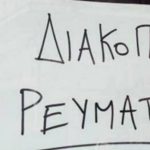 ΔΙΑΚΟΠ
ΡΕΥΜΑΤ